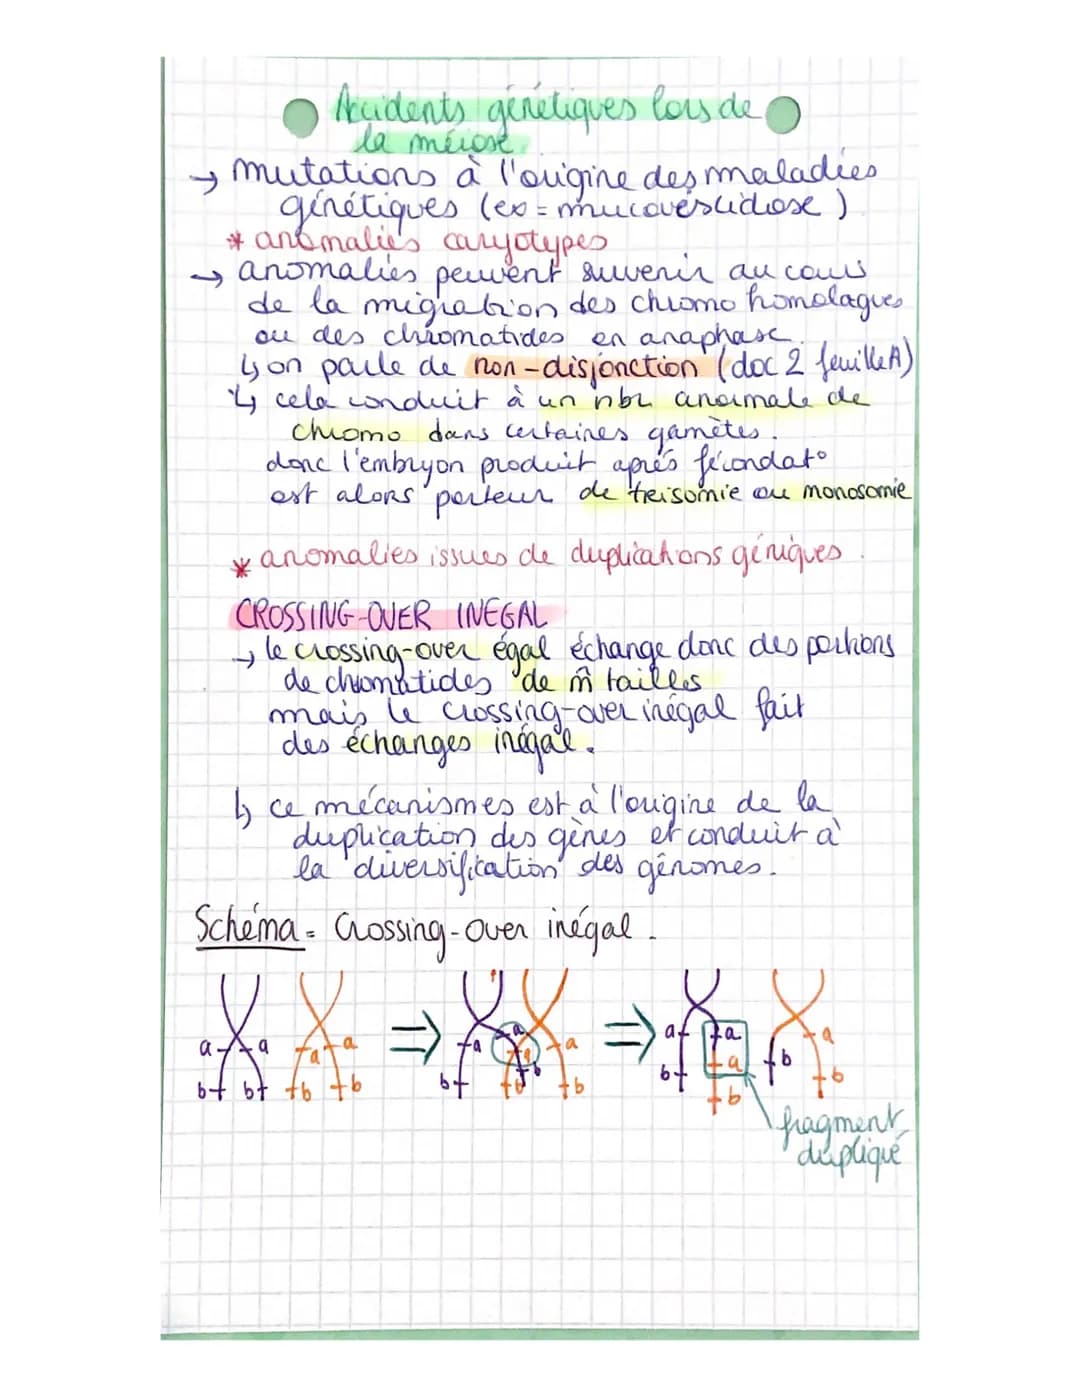 Accidents génétiques lors de
la méiose
→ mutations à l'origine des maladies
génétiques (ex = mucoviscidose)
* anomalies caryotypes
→ anomalies peuvent survenir au cours
de la migration des chromo homologues
ou des chromatides en anaphase.
↳ on parle de non-disjonction (doc 2 feuille A)
↳ cela conduit à un nbr anormale de
chromo dans certaines gamètes.
donc l'embryon produit après fécondat°
est alors porteur de treisomie ou monosomie
* anomalies issues de duplications géniques.
CROSSING-OVER INEGAL
→ le crossing-over égal échange donc des portions
de chromatides de m̂ tailles
mais le crossing-over inégal fait
des échanges inégal.
↳ ce mécanismes est à l'origine de la
duplication des gènes et conduit à
la diversification des génomes.
Schéma = Crossing-Over inégal.
a a a a ⇒ a a a a ⇒ a a a
b b b b b b b b b a b b
b
fragment
dupliqué